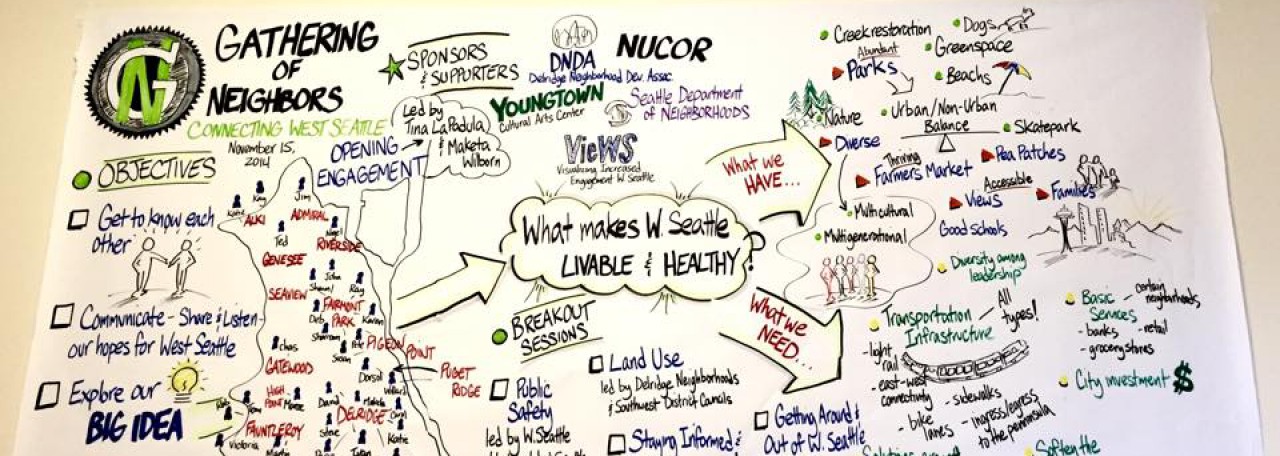 GN
GATHERING
OF
NEIGHBORS
CONNECTING WEST SEATTLE
November 15,
2014
OBJECTIVES
Get to know each
other
Communicate - Share & Listen -
our hopes for West Seattle
Explore our
BIG IDEA
SPONSORS
& SUPPORTERS
DNDA
Delridge Neighborhood Dev. Assoc.
NUCOR
YOUNGTOWN
Cultural Arts Center
Seattle Department
of NEIGHBORHOODS
VieWS
Visualizing Increased
Engagement W. Seattle
Led by
Tina LaPadula
& Maketa
Wilborn
OPENING
ENGAGEMENT
Jim
ALKI
ADMIRAL
Ted
RIVERSIDE
GENESEE
John
Ray
SEAVIEW
FAIRMONT
PARK
Deb
Karen
Susan
PIGEON POINT
Chas
GATEWOOD
Dorsol
PUGET
RIDGE
HIGH
POINT
David
DELRIDGE
FAUNTLEROY
Steve
Katie
Victoria
What makes W. Seattle
LIVABLE & HEALTHY?
BREAKOUT
SESSIONS
Public
Safety
led by W. Seattle
Land Use
led by Delridge Neighborhoods
& Southwest District Councils
Staying Informed &
Getting Around &
Out of W. Seattle
What we
HAVE...
What we
NEED...
Creek restoration
Dogs
Abundant
Parks
Greenspace
Beachs
Nature
Urban/Non-Urban
Balance
Skatepark
Diverse
Thriving
Farmers Market
Pea Patches
Accessible
Views
Families
Multicultural
Multigenerational
Good schools
Diversity among
leadership
Transportation
Infrastructure
All
types!
- light
rail
- east-west
connectivity
- bike
lanes
- sidewalks
- ingress/egress
to the peninsula
Basic
Services
certain
neighborhoods,
- banks
- retail
- grocery stores
City investment $
Soften the